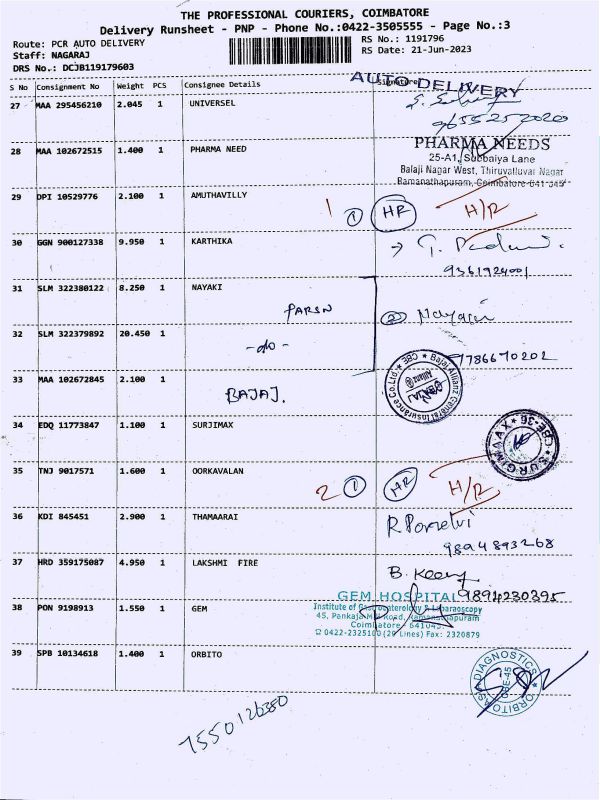 THE PROFESSIONAL COURIERS, COIMBATORE
Delivery Runsheet - PNP - Phone No.:0422-3505555 - Page No.:3
Route: PCR AUTO DELIVERY
RS No.: 1191796
Staff: NAGARAJ
RS Date: 21-Jun-2023
DRS No.: DCJB119179603
S No Consignment No Weight PCS Consignee Details Signature
AUTO DELIVERY
27 MAA 295456210 2.045 1 UNIVERSEL
9655252020
28 MAA 102672515 1.400 1 PHARMA NEED
PHARMA NEEDS
25-A1, Subbaiya Lane
Balaji Nagar West, Thiruvalluvar Nagar
Ramanathapuram, Coimbatore-641 045
29 DPI 10529776 2.100 1 AMUTHAVILLY
1 ① HR H/R
30 GGN 900127338 9.950 1 KARTHIKA
9361924001
31 SLM 322380122 8.250 1 NAYAKI
② Nayaki
32 SLM 322379892 20.450 1
-do-
7786670202
33 MAA 102672845 2.100 1
BAJAJ.
Bajaj Allianz General Insurance Co.Ltd. * CBE *
34 EDQ 11773847 1.100 1 SURJIMAX
CBE-36
35 TNJ 9017571 1.600 1 OORKAVALAN
2 ① HR H/R
36 KDI 845451 2.900 1 THAMAARAI
9894893268
37 HRD 359175087 4.950 1 LAKSHMI FIRE
9894230395
38 PON 9198913 1.550 1 GEM
GEM HOSPITAL
Institute of Gastroenterology & Laparoscopy
45, Pankaja Mill Road, Ramanathapuram
Coimbatore 641045.
0422-2325100 (20 Lines) Fax: 2320879
39 SPB 10134618 1.400 1 ORBITO
ORBITO ASIA DIAGNOSTICS
CBE-45
7550126380